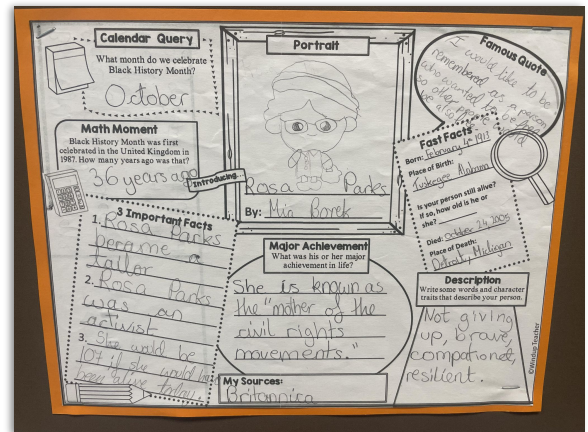 Calendar Query
What month do we celebrate
Black History Month?
October
Math Moment
Black History Month was first
celebrated in the United Kingdom in
1987. How many years ago was that?
36 years ago
Introducing
Portrait
Rosa Parks
By: Mia Borek
Famous Quote
I would like to be
remembered as a person
who wanted to be free
so other people
be also
Fast Facts
Born: February 4th 1913
Place of Birth:
Tuskegee Alabama
Is your person still alive?
If so, how old is he or
she?
Died: october 24, 2005
Place of Death:
Detroit, Michigan
3 Important Facts
1. Rosa Parks
became a
tailor
2. Rosa Parks
was an
activist
3. She would be
107 if she would had
been alive today.
Major Achievement
What was his or her major
achievement in life?
She is known as
the "mother of the
civil rights
movements."
My Sources:
Britannica
Description
Write some words and character
traits that describe your person.
Not giving
up, brave,
compationed,
resilient.
©Windup Teacher